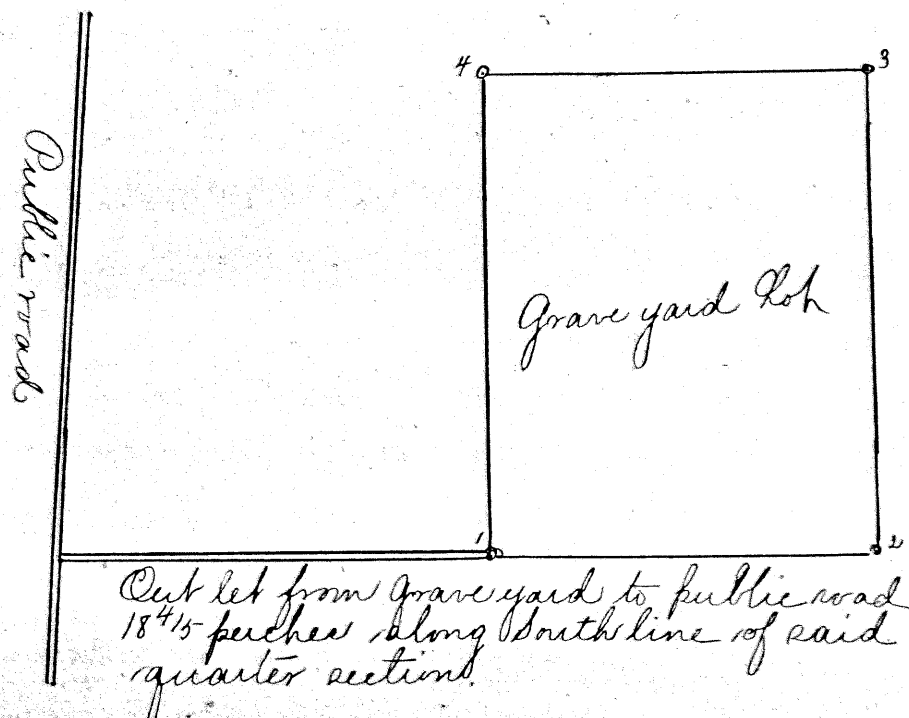 4
3
Public road
Grave yard Lot
1
2
Out let from grave yard to public road
18 4/5 perches along South line of said
quarter section.